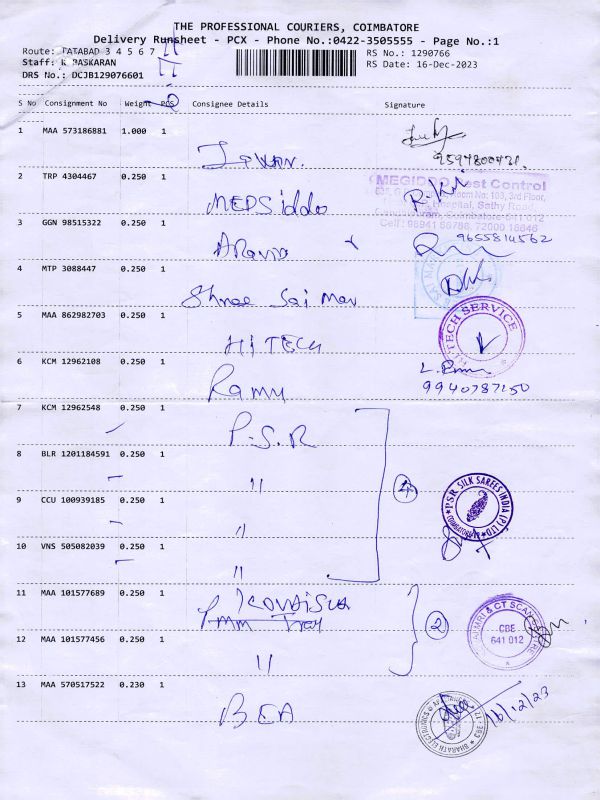 THE PROFESSIONAL COURIERS, COIMBATORE
Delivery Runsheet - PCX - Phone No.:0422-3505555 - Page No.:1
Route: TATABAD 3 4 5 6 7
RS No.: 1290766
Staff: K BASKARAN
RS Date: 16-Dec-2023
DRS No.: DCJB129076601
S No Consignment No Weight PCS Consignee Details Signature
1 MAA 573186881 1.000 1
2 TRP 4304467 0.250 1
MEGIDDO Pest Control
Room No: 103, 3rd Floor,
Hospital, Sathy Road,
Coimbatore-641 012
Cell: 98941 66786, 72000 16646
MEDSiddo
3 GGN 98515322 0.250 1
9655814562
Aravind
4 MTP 3088447 0.250 1
Shree Sai Mav
5 MAA 862982703 0.250 1
HI-TECH SERVICE
HITECH
6 KCM 12962108 0.250 1
9940787150
Ramu
7 KCM 12962548 0.250 1
P.S.R
8 BLR 1201184591 0.250 1
"
4
PSR SILK SAREES INDIA (P) LTD
COIMBATORE
9 CCU 100939185 0.250 1
"
10 VNS 505082039 0.250 1
"
11 MAA 101577689 0.250 1
2
MRI & CT SCAN CENTRE
CBE
641 012
12 MAA 101577456 0.250 1
"
13 MAA 570517522 0.230 1
BEA
BHARATH ELECTRONICS &
16/12/23